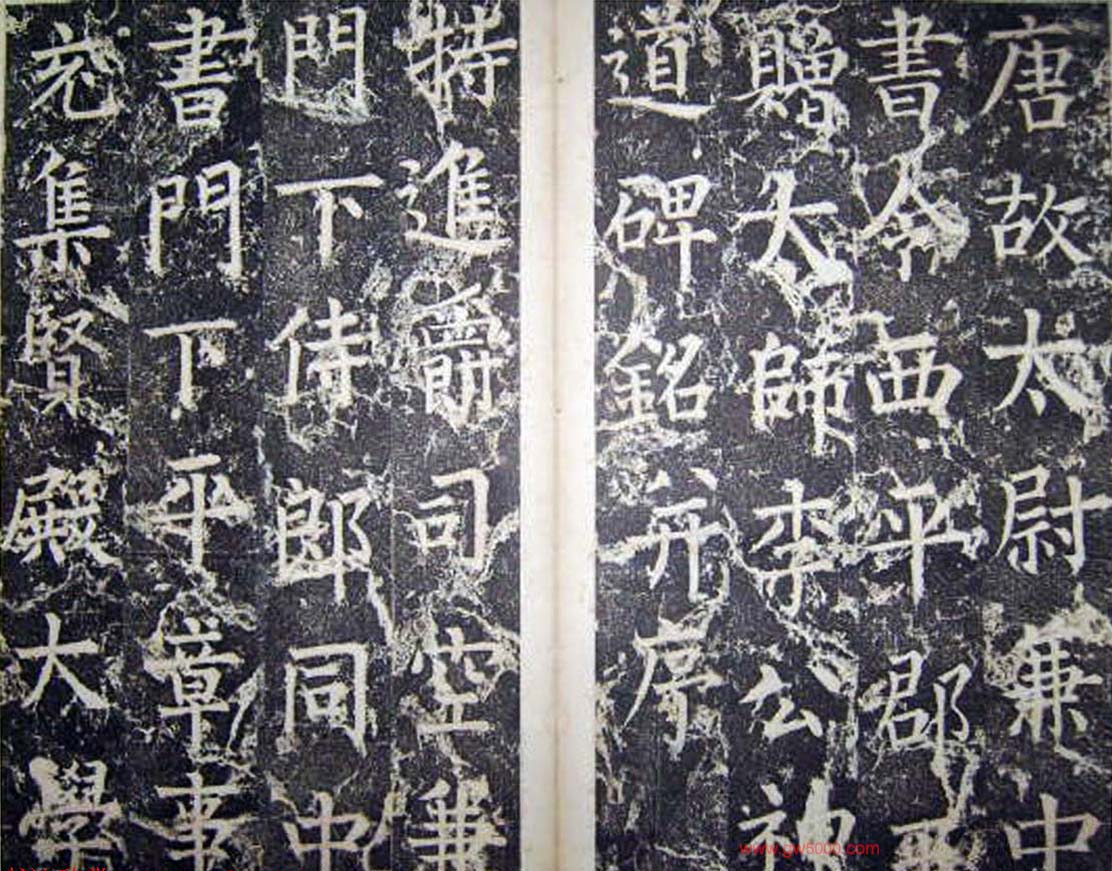 唐故太尉兼中
書令西平郡王
贈太師李公神
道碑銘并序
特進爵司空兼
門下侍郎同中
書門下平章事
充集賢殿大學
www.gw5000.com